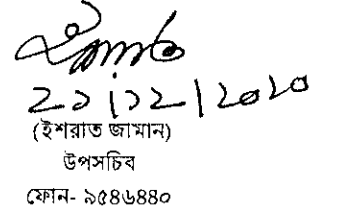 ২১|১২|২০২০
(ইশরাত জামান)
উপসচিব
ফোন- ৯৫৪৬৪৪০